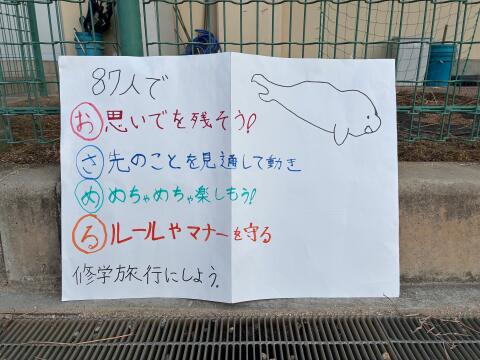 87人で
お思いでを残そう!
さ先のことを見通して動き
めめちゃめちゃ楽しもう!
るルールやマナーを守る
修学旅行にしよう。